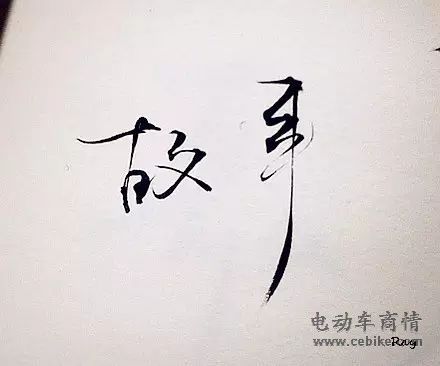 故事
电动车商情
www.cebike.com